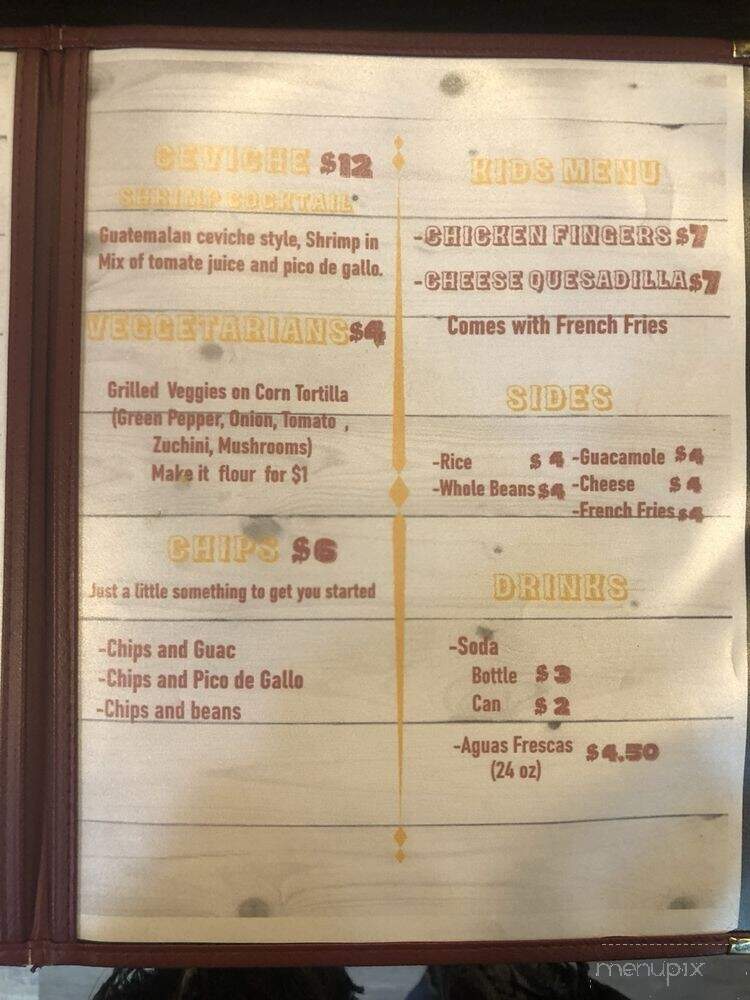 CEVICHE $12
SHRIMP COCKTAIL
Guatemalan ceviche style, Shrimp in
Mix of tomate juice and pico de gallo.
VEGGETARIANS $4
Grilled Veggies on Corn Tortilla
(Green Pepper, Onion, Tomato ,
Zuchini, Mushrooms)
Make it flour for $1
CHIPS $6
Just a little something to get you started
-Chips and Guac
-Chips and Pico de Gallo
-Chips and beans
KIDS MENU
-CHICKEN FINGERS $7
-CHEESE QUESADILLA $7
Comes with French Fries
SIDES
-Rice $ 4 -Guacamole $4
-Whole Beans $4 -Cheese $ 4
-French Fries $4
DRINKS
-Soda
Bottle $ 3
Can $ 2
-Aguas Frescas $4.50
(24 oz)
menupix